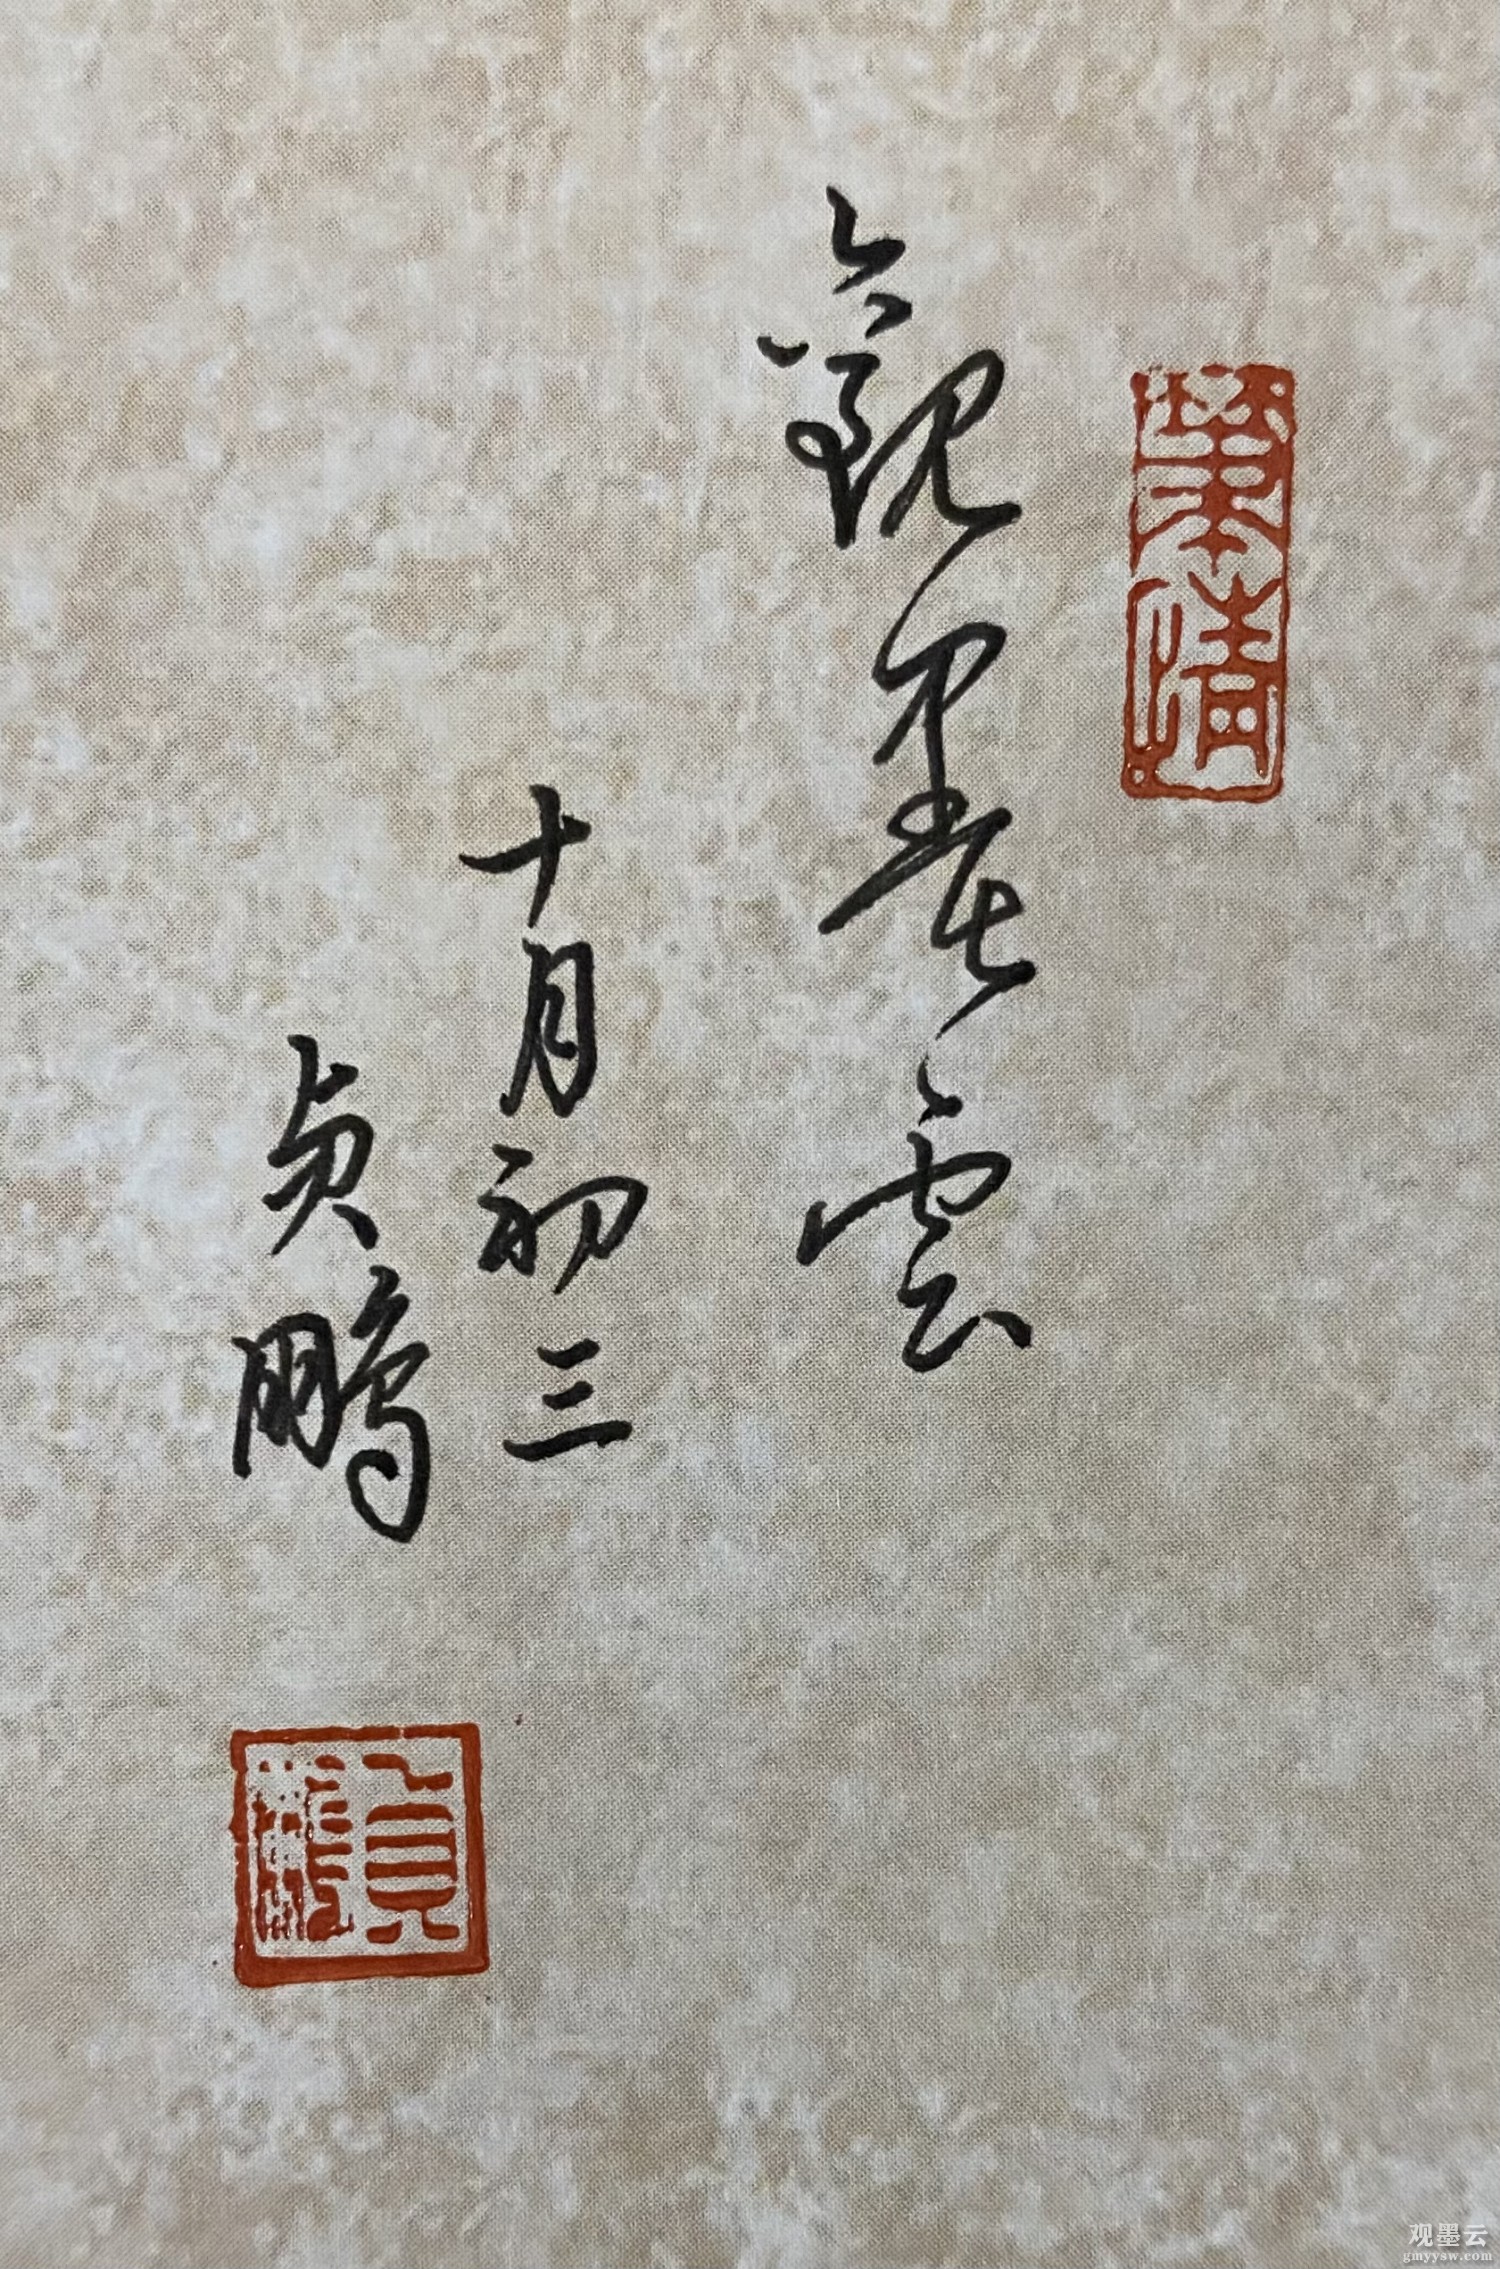 觀墨雲
十月初三
贞鹏
筆情
貞鵬
观墨云
gmyysw.com